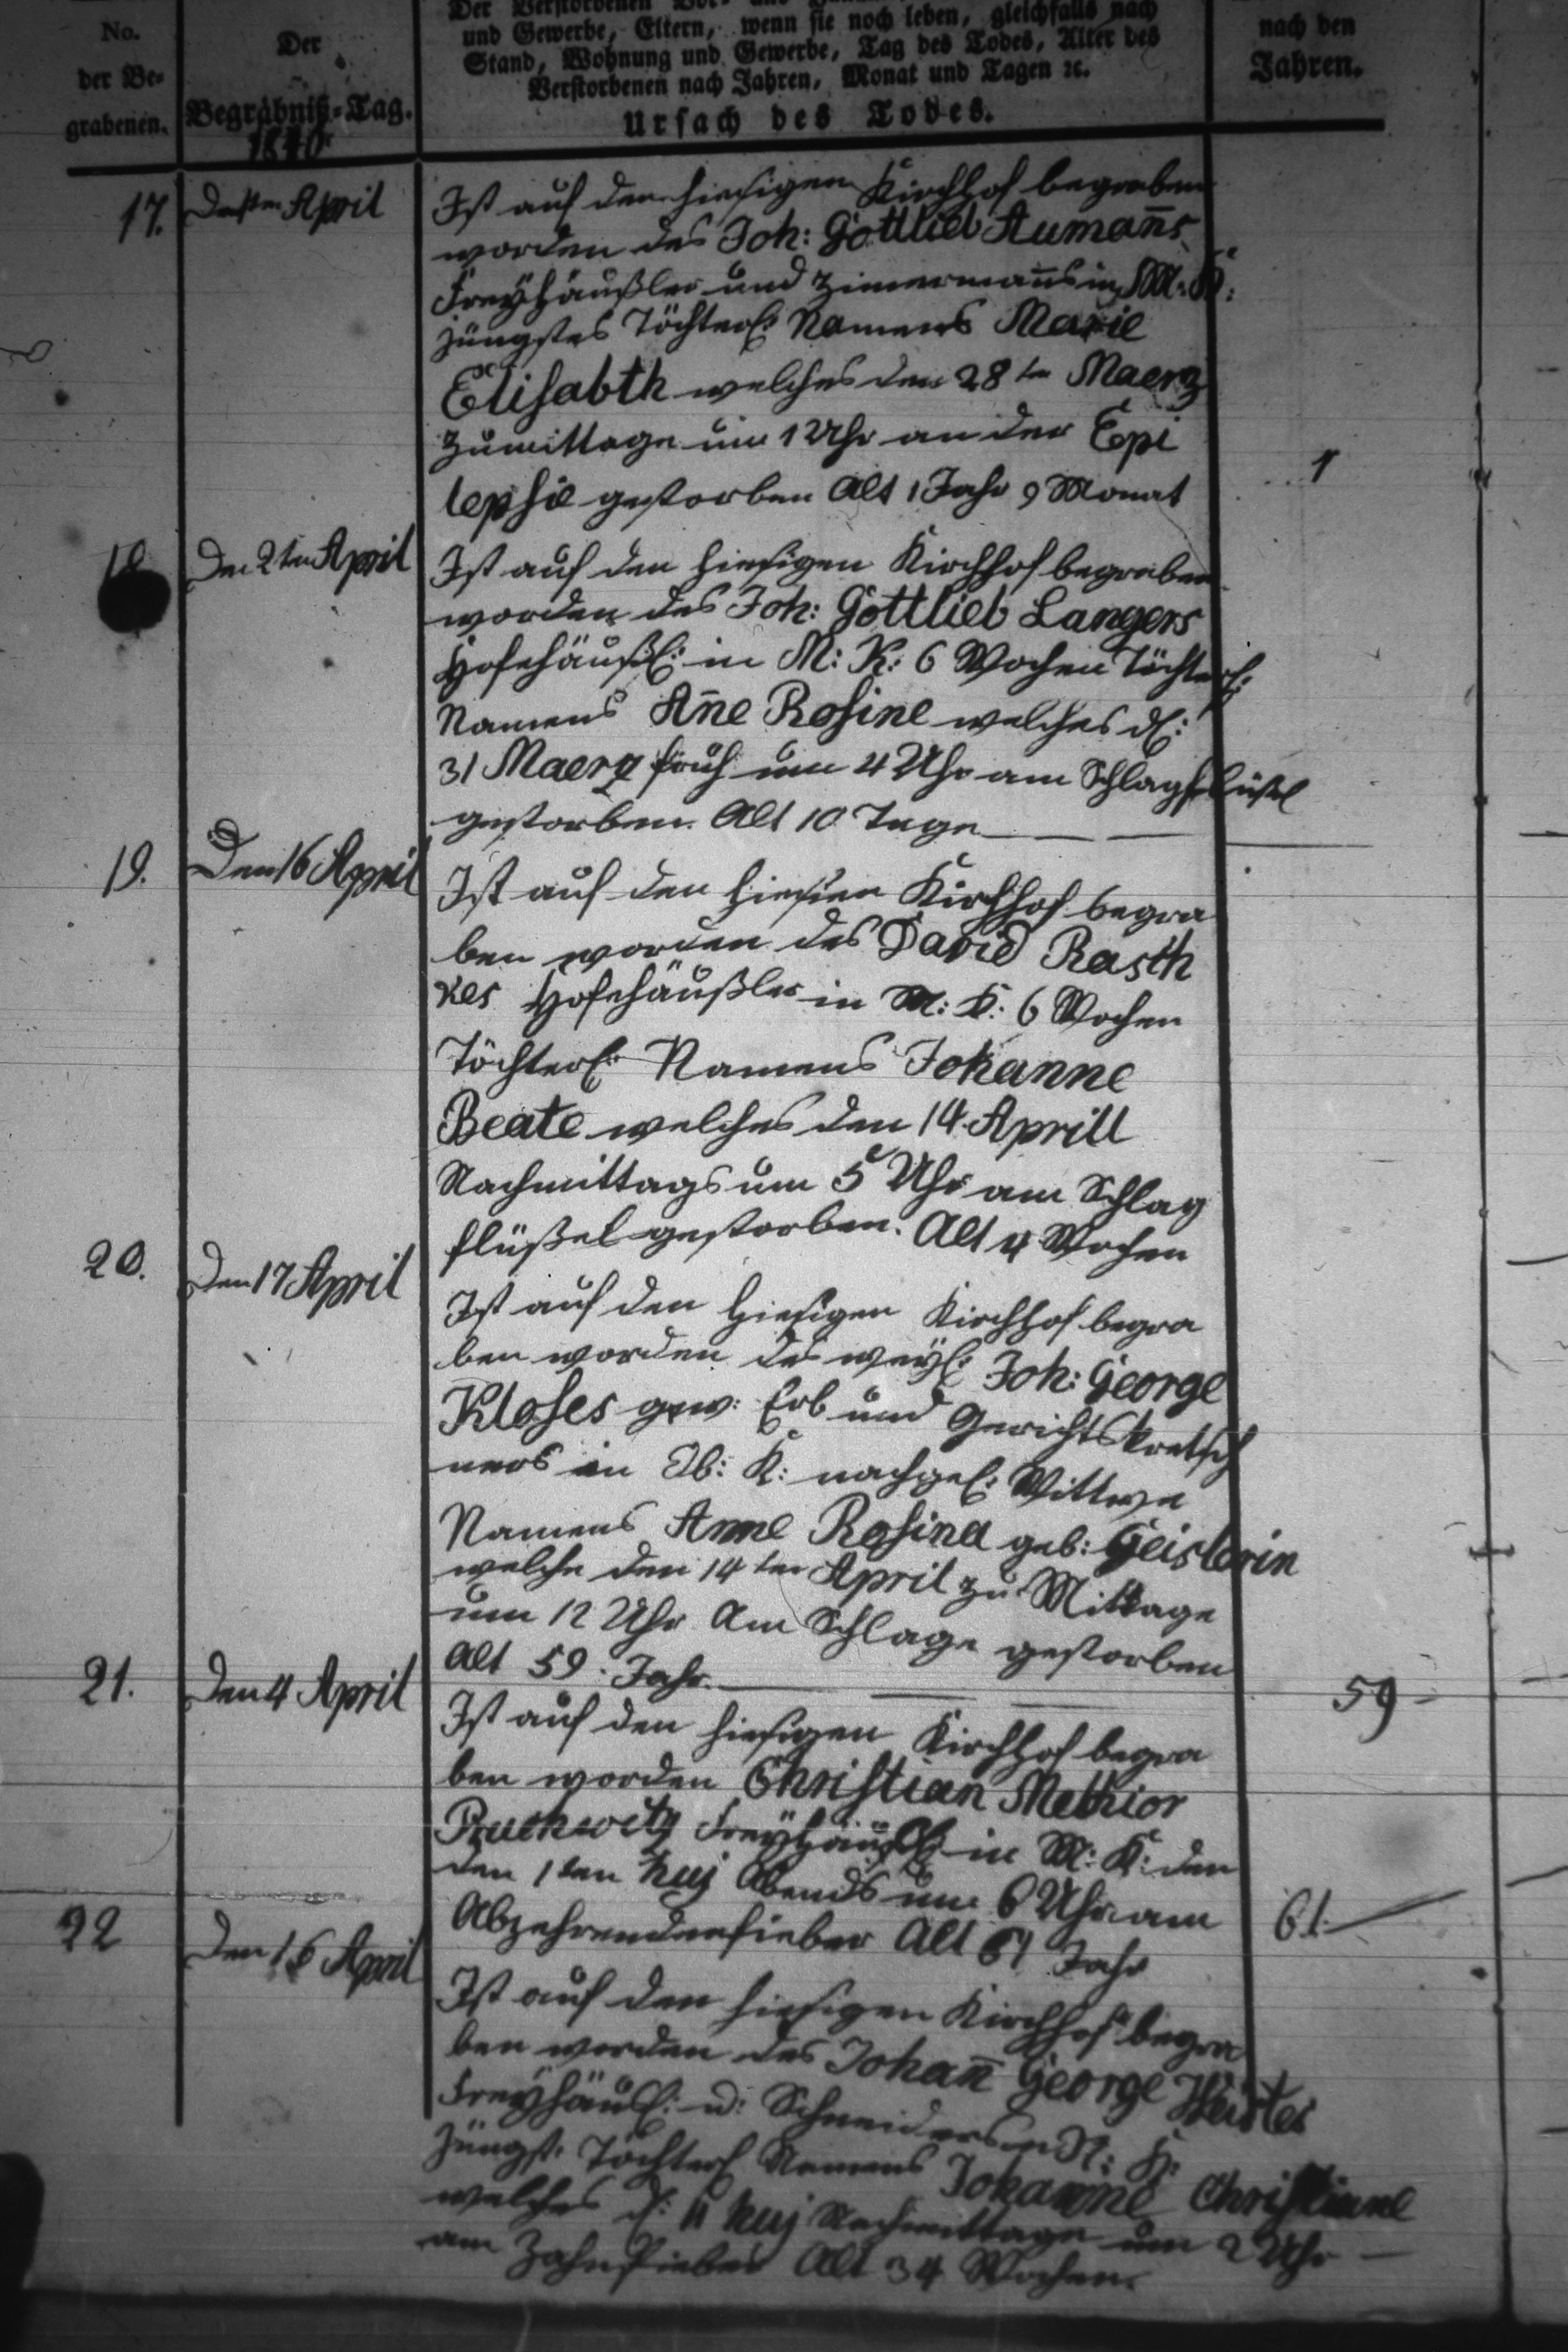 No.
der Be-
grabenen.
Der
Begräbniß-Tag.
1840
und Gewerbe, Eltern, wenn sie noch leben, gleichfalls nach
Stand, Wohnung und Gewerbe, Tag des Todes, Alter des
Verstorbenen nach Jahren, Monat und Tagen ꝛc.
Ursach des Todes.
nach den
Jahren.
17.
April
Ist auf den hiesigen Kirchhof begraben
worden des Joh: Gottlieb Aumañs
Freyhäußler und Zimermañs in
jüngstes Töchterl: Namens Marie
Elisabth welches den 28ten Maerz
Zumittage um 1 Uhr an der Epi
lepsie gestorben Alt 1 Jahr 9 Monat
1
18
Den 2ten April
Ist auf den hiesigen Kirchhof begraben
worden des Joh: Gottlieb Langers
Hofehäußl: in M: K: 6 Wochen Töchterl:
Namens Añe Rosine welches d:
31 Maerz früh um 4 Uhr am Schlagflüßel
gestorben. Alt 10 Tage
19.
Den 16 April
Ist auf den Kirchhof begra
ben worden des David Rasth
kes Hofehäußler in M: K: 6 Wochen
Töchterl: Namens Johanne
Beate welches den 14. Aprill
Nachmittags um 5 Uhr am Schlag
flüßel gestorben. Alt 4 Wochen
20.
Den 17 April
Ist auf den hiesigen Kirchhof begra
ben worden des weyl: Joh: George
Kloses gew: Erb und Gerichtskretsch
mers in Ob: K: nachgel: Wittwe
Namens Anne Rosina geb: Geislerin
welche den 14ten April zu Mittage
um 12 Uhr Am Schlage gestorben
Alt 59. Jahr.
59
21.
Den 4 April
Ist auf den hiesigen Kirchhof begra
ben worden Christian Melhior
Freyhäußl: in M: K: den
den 1ten huj Abends um 6 Uhr am
Abzehrendenfieber Alt 61 Jahr
61.
22
Den 16 April
Ist auf den hiesigen Kirchhof begra
ben worden des Johañ George
Freyhäusl: u: Schneiders in K:
jüngst. Töchterl Namens Johanne Christiane
welches d: 11 huj Nachmittage um 2 Uhr
am Zahnfieber Alt 34 Wochen.